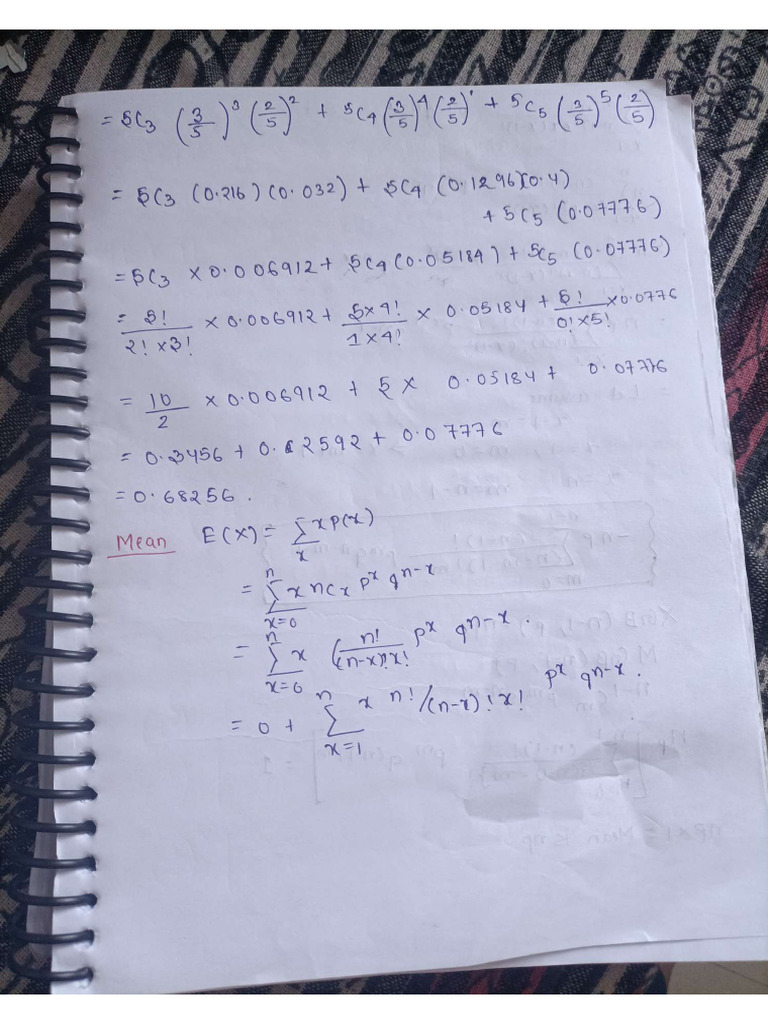 = 5C3 (3/5)^3 (2/5)^2 + 5C4 (3/5)^4 (2/5)^1 + 5C5 (3/5)^5 (2/5)
= 5C3 (0.216) (0.032) + 5C4 (0.1296)(0.4)
+ 5C5 (0.07776)
= 5C3 × 0.006912 + 5C4 (0.05184) + 5C5 (0.07776)
= 5!/(2! × 3!) × 0.006912 + (5×4!)/(1×4!) × 0.05184 + 5!/(0!×5!) × 0.0776
= 10/2 × 0.006912 + 5 × 0.05184 + 0.07776
= 0.3456 + 0.2592 + 0.07776
= 0.68256.
Mean E(X) = Σ_x x p(x)
= Σ_{x=0}^{n} x nCx p^x q^{n-x}
= Σ_{x=0}^{n} x (n!/(n-x)!x! p^x q^{n-x}.
= 0 + Σ_{x=1}^{n} x n!/(n-x)!x! p^x q^{n-x}.